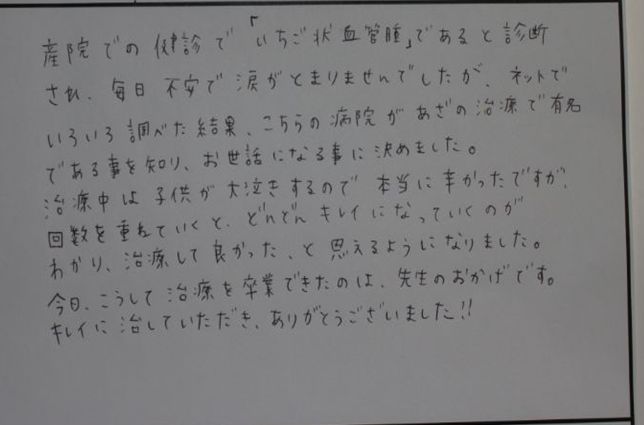 産院での健診で「いちご状血管腫」であると診断
され、毎日不安で涙がとまりませんでしたが、ネットで
いろいろ調べた結果、こちらの病院があざの治療で有名
である事を知り、お世話になる事に決めました。
治療中は子供が大泣きするので本当に辛かったですが、
回数を重ねていくと、どんどんキレイになっていくのが
わかり、治療して良かった、と思えるようになりました。
今日、こうして治療を卒業できたのは、先生のおかげです。
キレイに治していただき、ありがとうございました!!